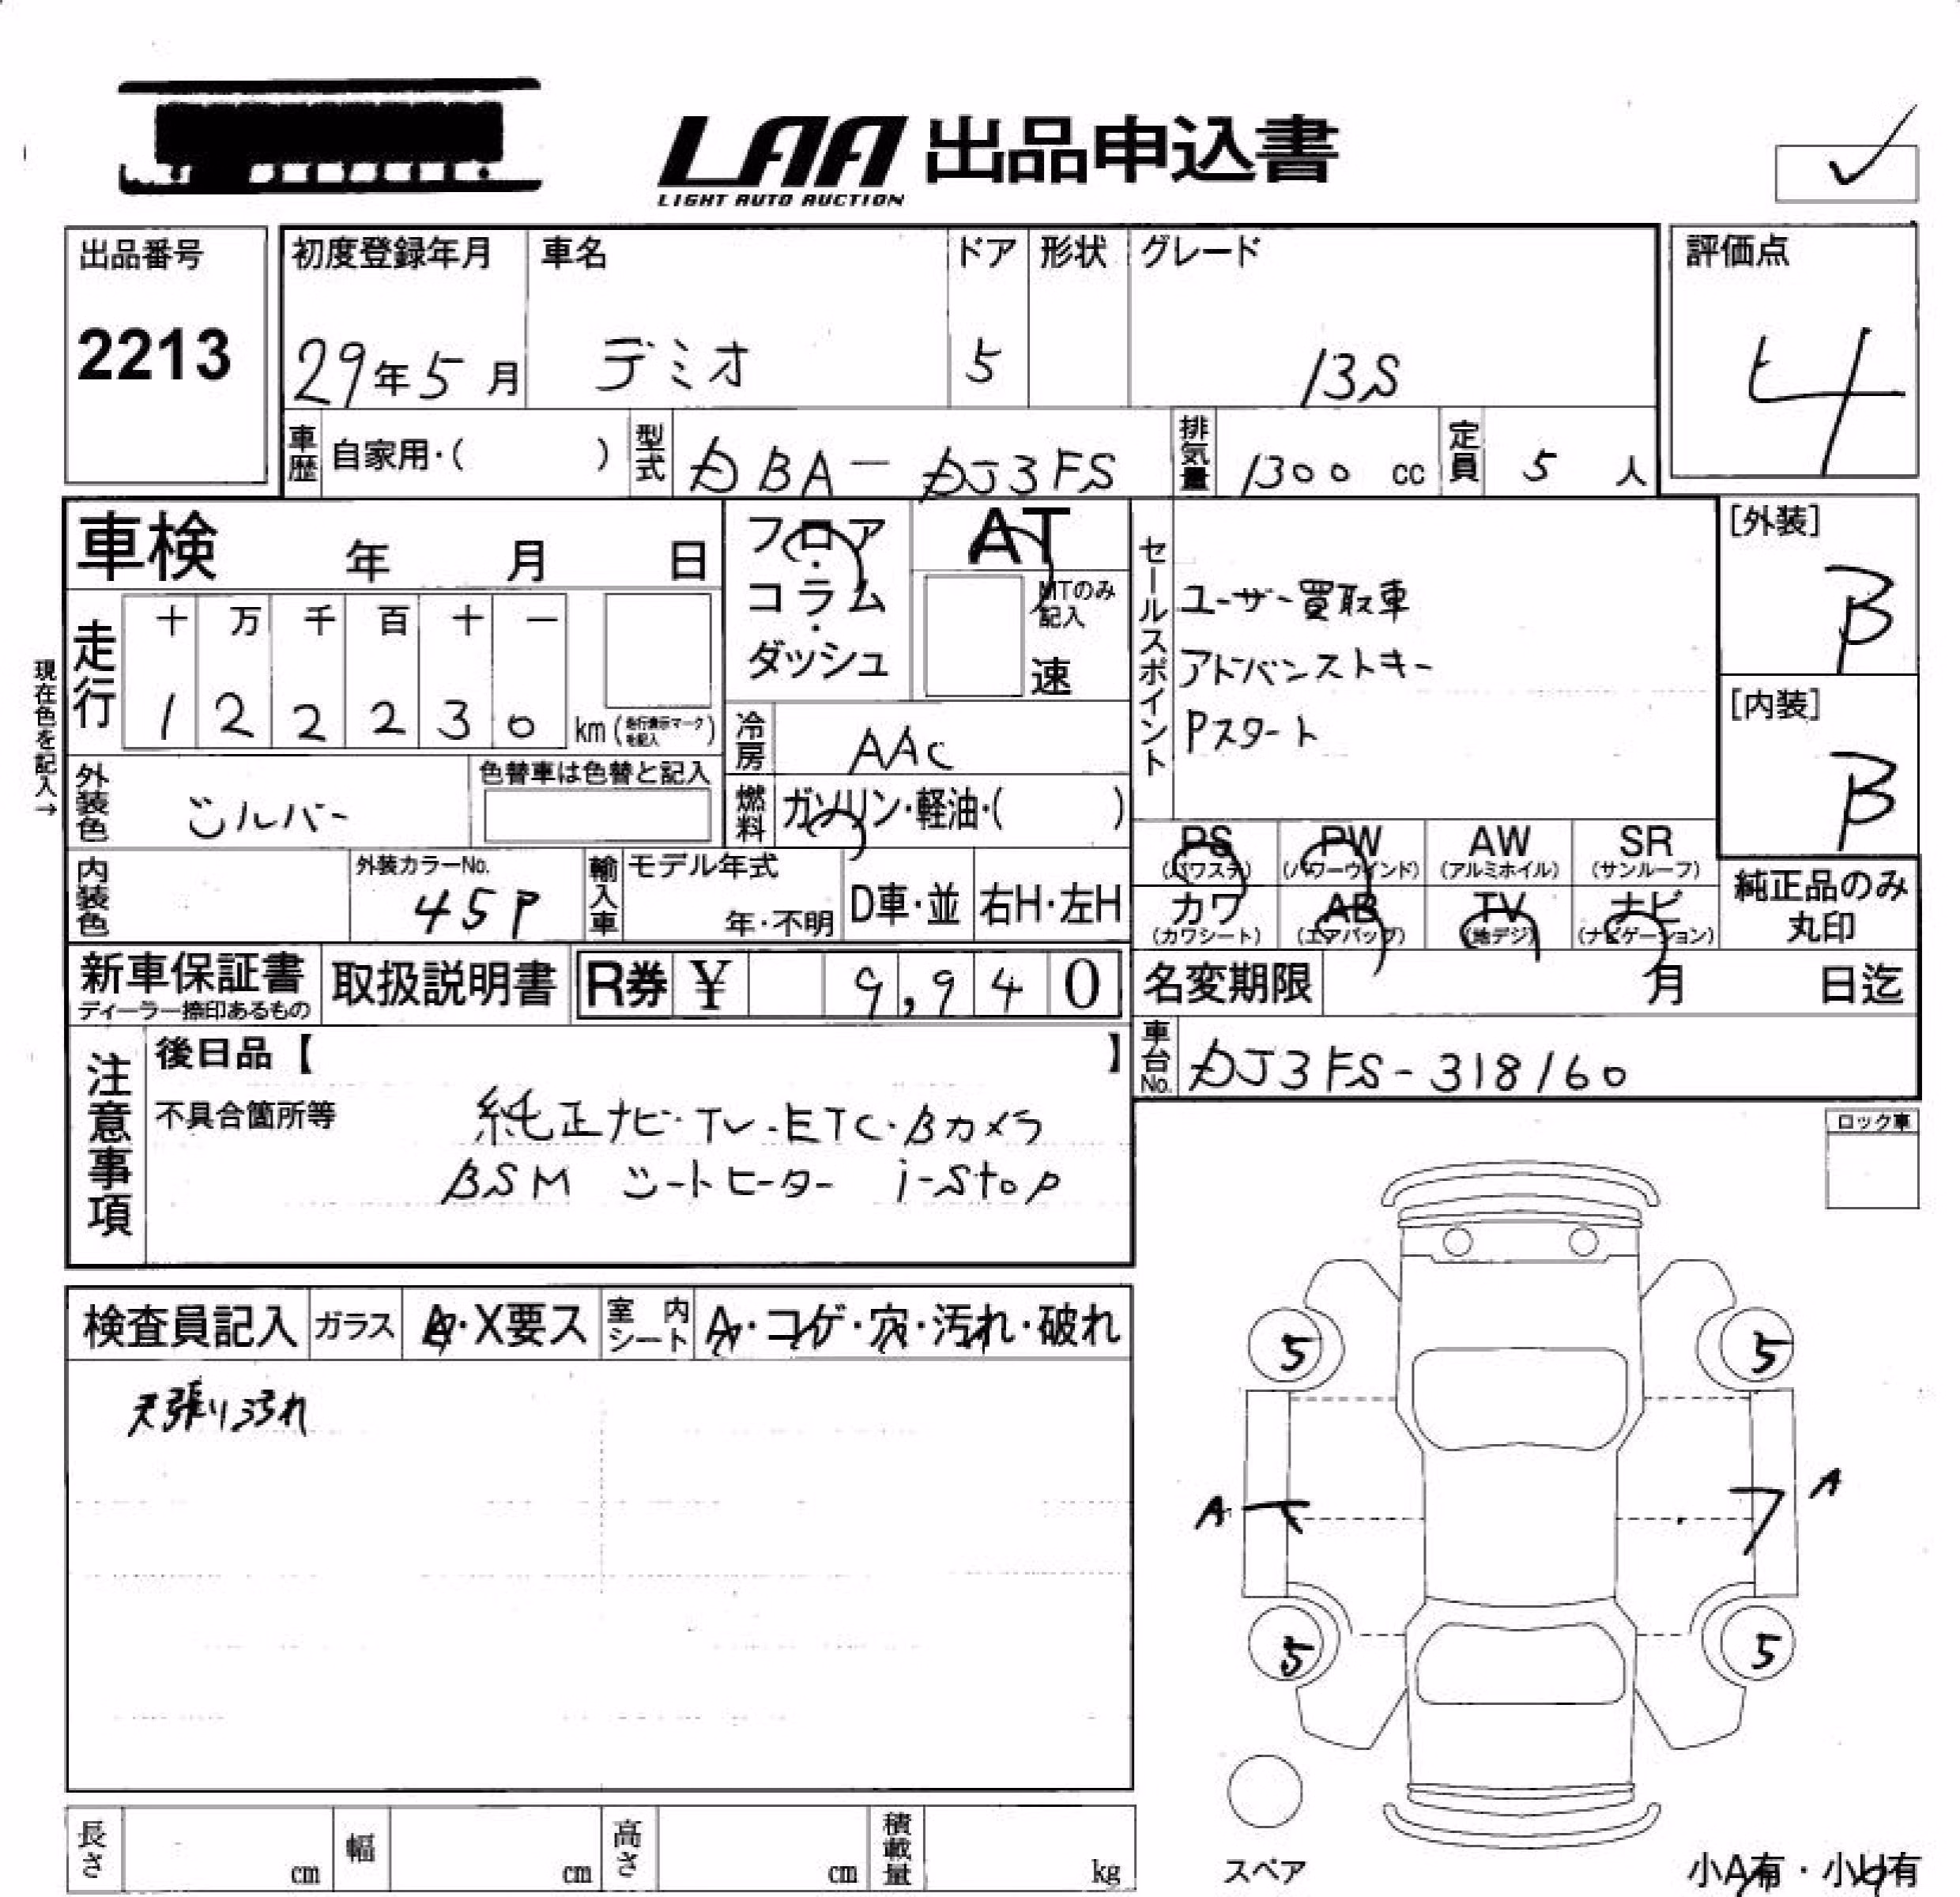 LAA 出品申込書
LIGHT AUTO AUCTION
出品番号
2213
初度登録年月
29年5月
車名
デミオ
ドア
5
形状
グレード
13S
評価点
4
車歴 自家用・( )
型式 DBA-DJ3FS
排気量 1300 cc
定員 5 人
車検 年 月 日
フロア・コラム・ダッシュ
AT
MTのみ記入
速
セールスポイント
ユーザー買取車
アドバンストキー
Pスタート
[外装]
B
[内装]
B
現在色を記入→
走行
十 万 千 百 十 一
1 2 2 2 3 0 km (走行表示マークを記入)
冷房 AAC
外装色 シルバー
色替車は色替と記入
燃料 ガソリン・軽油・( )
PS (パワステ)
PW (パワーウインド)
AW (アルミホイル)
SR (サンルーフ)
カワ (カワシート)
AB (エアバッグ)
TV (地デジ)
ナビ (ナビゲーション)
純正品のみ丸印
内装色
外装カラーNo.
45P
輸入車
モデル年式
年・不明
D車・並
右H・左H
新車保証書
ディーラー捺印あるもの
取扱説明書
R券 ¥ 9,940
名変期限 月 日迄
車台No. DJ3FS-318160
注意事項
後日品【 】
不具合箇所等
純正ナビ・TV・ETC・Bカメラ
BSM シートヒーター i-stop
ロック車
検査員記入
ガラス
A・X要ス
室内シート
A・コゲ・穴・汚れ・破れ
天張り汚れ
5 5
A A
5 5
スペア
小A有・小U有
長さ cm
幅 cm
高さ cm
積載量 kg